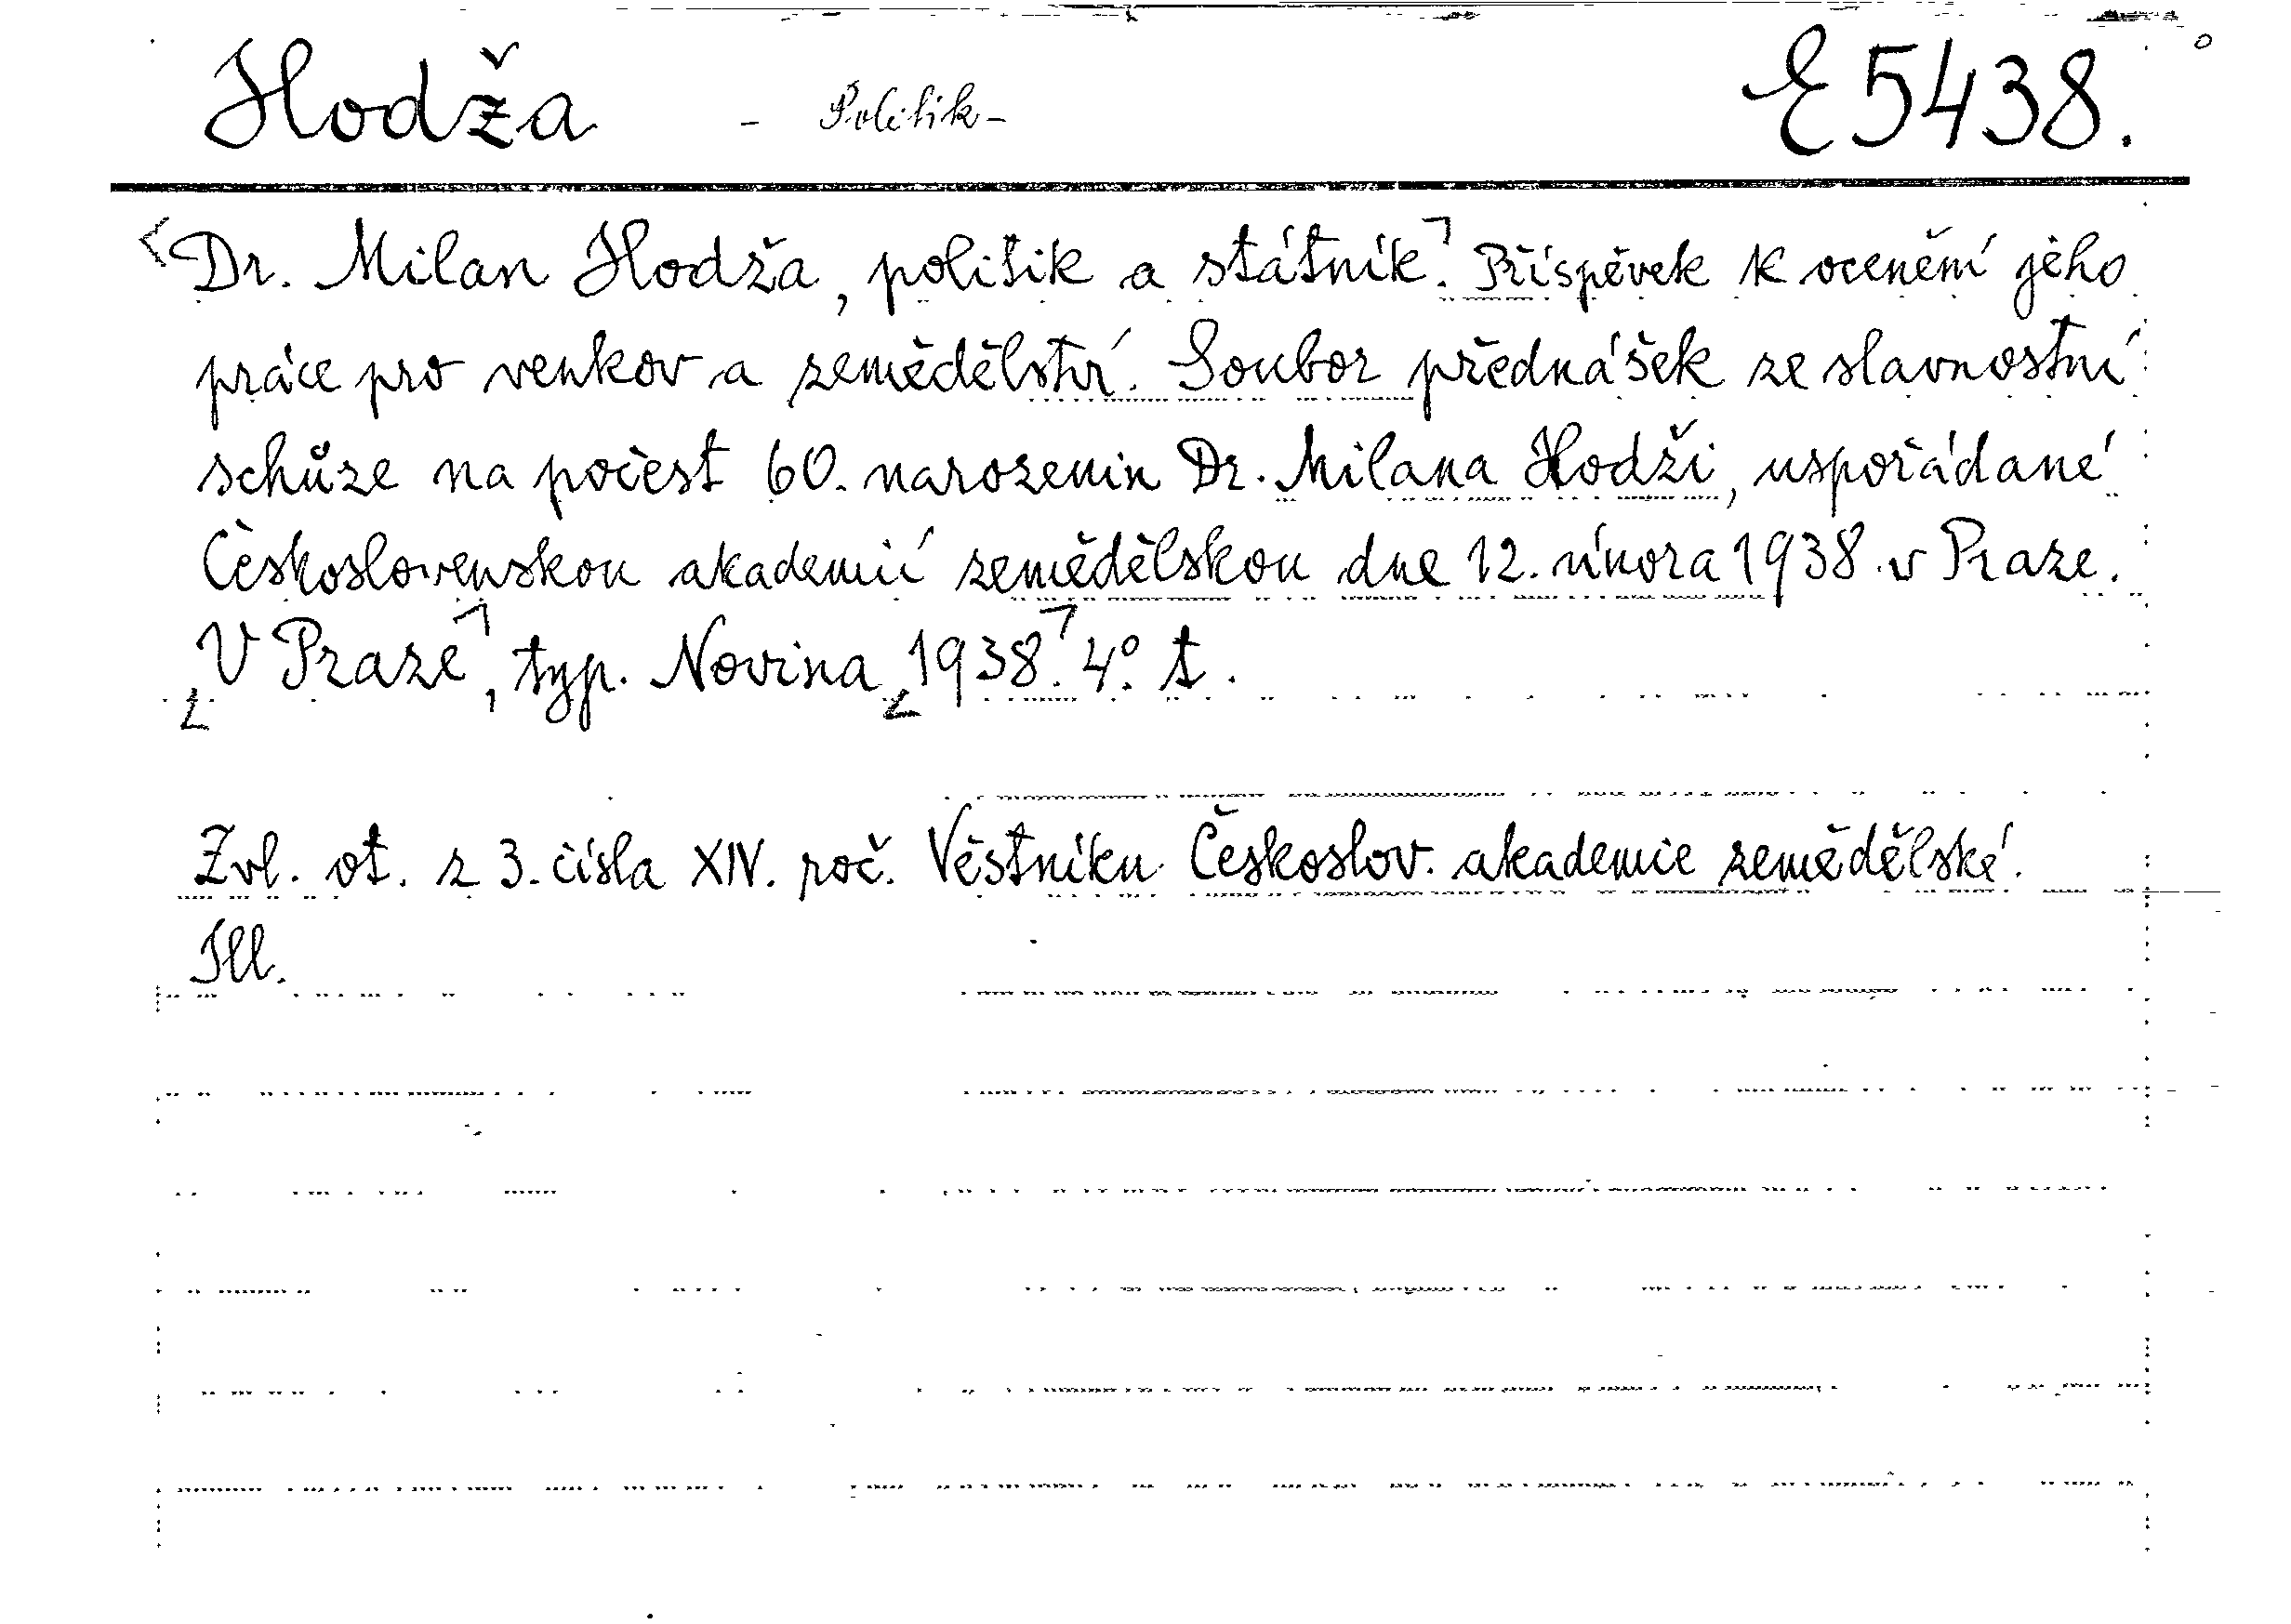 Hodža - Politik - E 5438.
Dr. Milan Hodža, politik a státník. Příspěvek k ocenění jeho
práce pro venkov a zemědělství. Soubor přednášek ze slavnostní
schůze na počest 60. narozenin Dr. Milana Hodži, uspořádané
Československou akademií zemědělskou dne 12. února 1938 v Praze.
V Praze, typ. Novina, 1938. 4°. t.
Zvl. ot. z 3. čísla XIV. roč. Věstníku Českoslov. akademie zemědělské.
Ill.